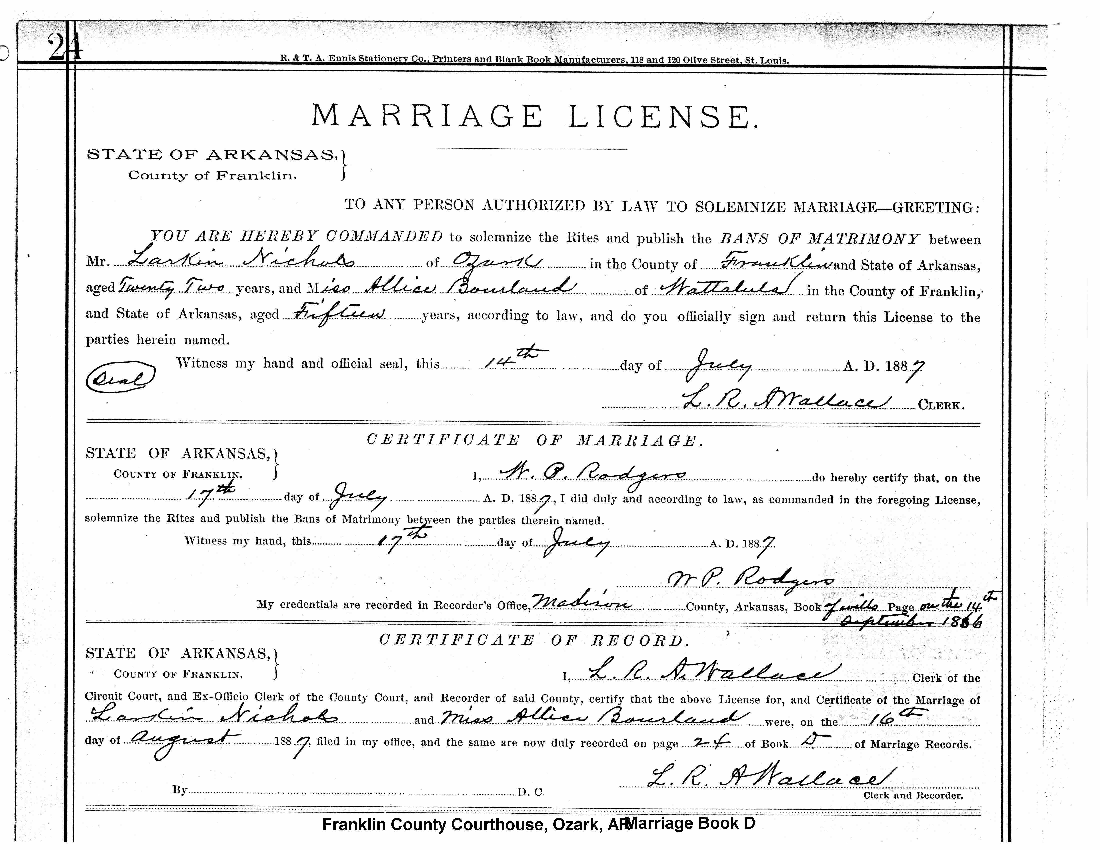 24
R. & T. A. Ennis Stationery Co., Printers and Blank Book Manufacturers, 118 and 120 Olive Street, St. Louis.
MARRIAGE LICENSE.
STATE OF ARKANSAS, }
County of Franklin.
TO ANY PERSON AUTHORIZED BY LAW TO SOLEMNIZE MARRIAGE—GREETING:
YOU ARE HEREBY COMMANDED to solemnize the Rites and publish the BANS OF MATRIMONY between
Mr. Larkin Nichols of Ozark in the County of Franklin and State of Arkansas,
aged Twenty Two years, and Miss Allice Bourland of Wattalula in the County of Franklin,
and State of Arkansas, aged Fifteen years, according to law, and do you officially sign and return this License to the
parties herein named.
Witness my hand and official seal, this 14th day of July A. D. 1887
Seal
L. R. A Wallace CLERK.
CERTIFICATE OF MARRIAGE.
STATE OF ARKANSAS, }
COUNTY OF FRANKLIN.
I, W. P. Rodgers do hereby certify that, on the
17th day of July A. D. 1887, I did duly and according to law, as commanded in the foregoing License,
solemnize the Rites and publish the Bans of Matrimony between the parties therein named.
Witness my hand, this 17th day of July A. D. 1887.
W P. Rodgers
My credentials are recorded in Recorder's Office, Madison County, Arkansas, Book of wills Page on the 14th
September 1886
CERTIFICATE OF RECORD.
STATE OF ARKANSAS, }
COUNTY OF FRANKLIN.
I, L. R. A. Wallace Clerk of the
Circuit Court, and Ex-Officio Clerk of the County Court, and Recorder of said County, certify that the above License for, and Certificate of the Marriage of
Larkin Nichols and Miss Allice Bourland were, on the 16th
day of August 1887, filed in my office, and the same are now duly recorded on page 24 of Book D of Marriage Records.
L. R. A Wallace
By D. C.
Clerk and Recorder.
Franklin County Courthouse, Ozark, AR Marriage Book D